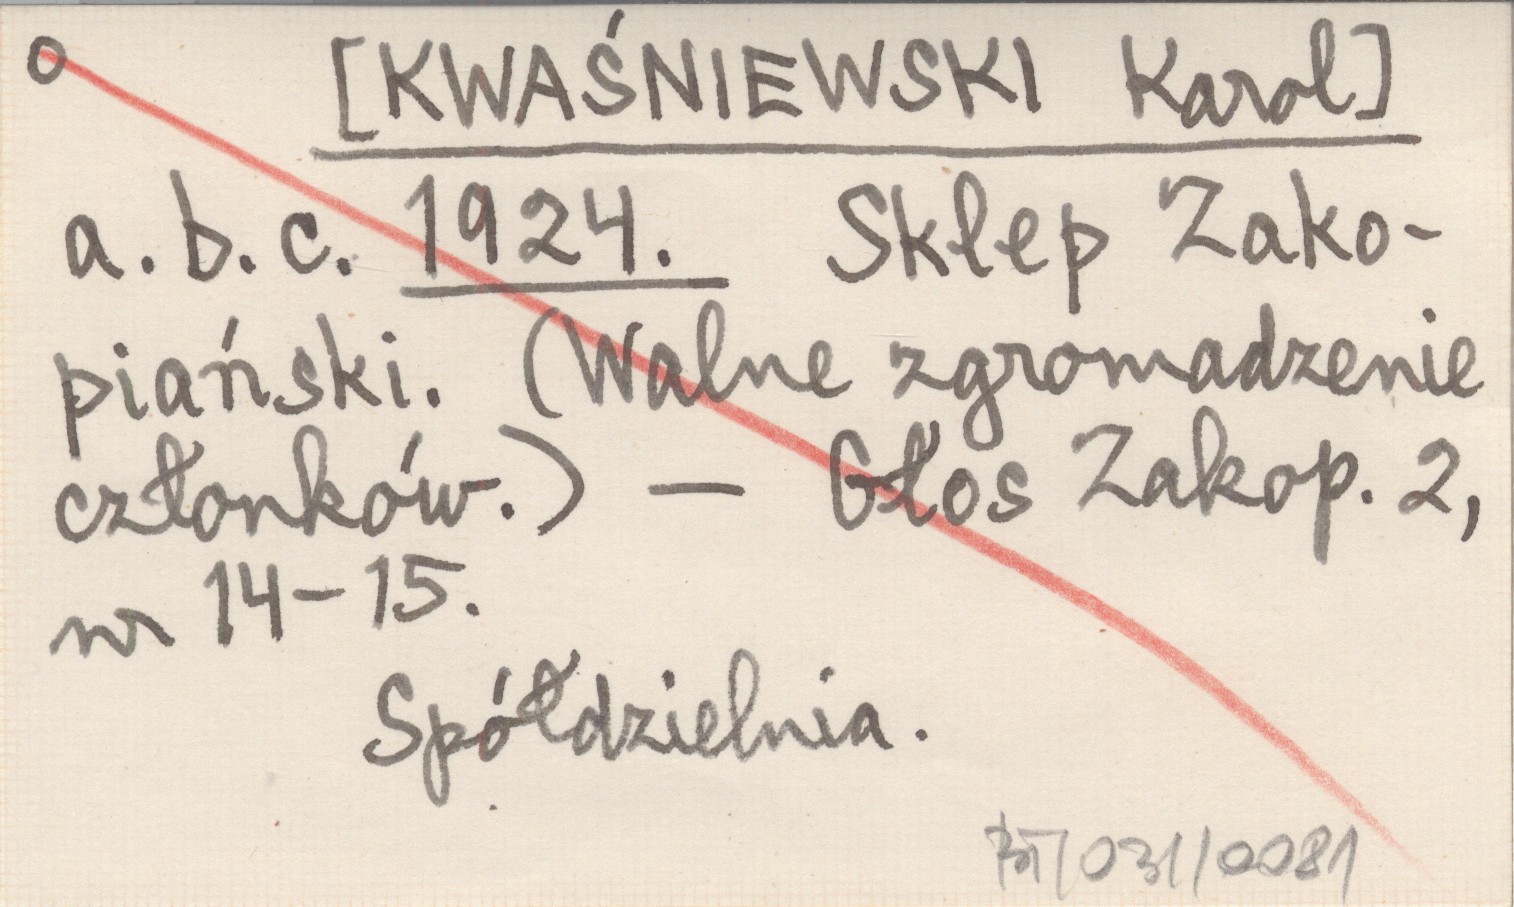 o [KWAŚNIEWSKI Karol]
a.b.c. 1924. Sklep Zako-
piański. (Walne zgromadzenie
członków.) — Głos Zakop. 2,
nr 14-15.
Spółdzielnia.
BT/031/0081